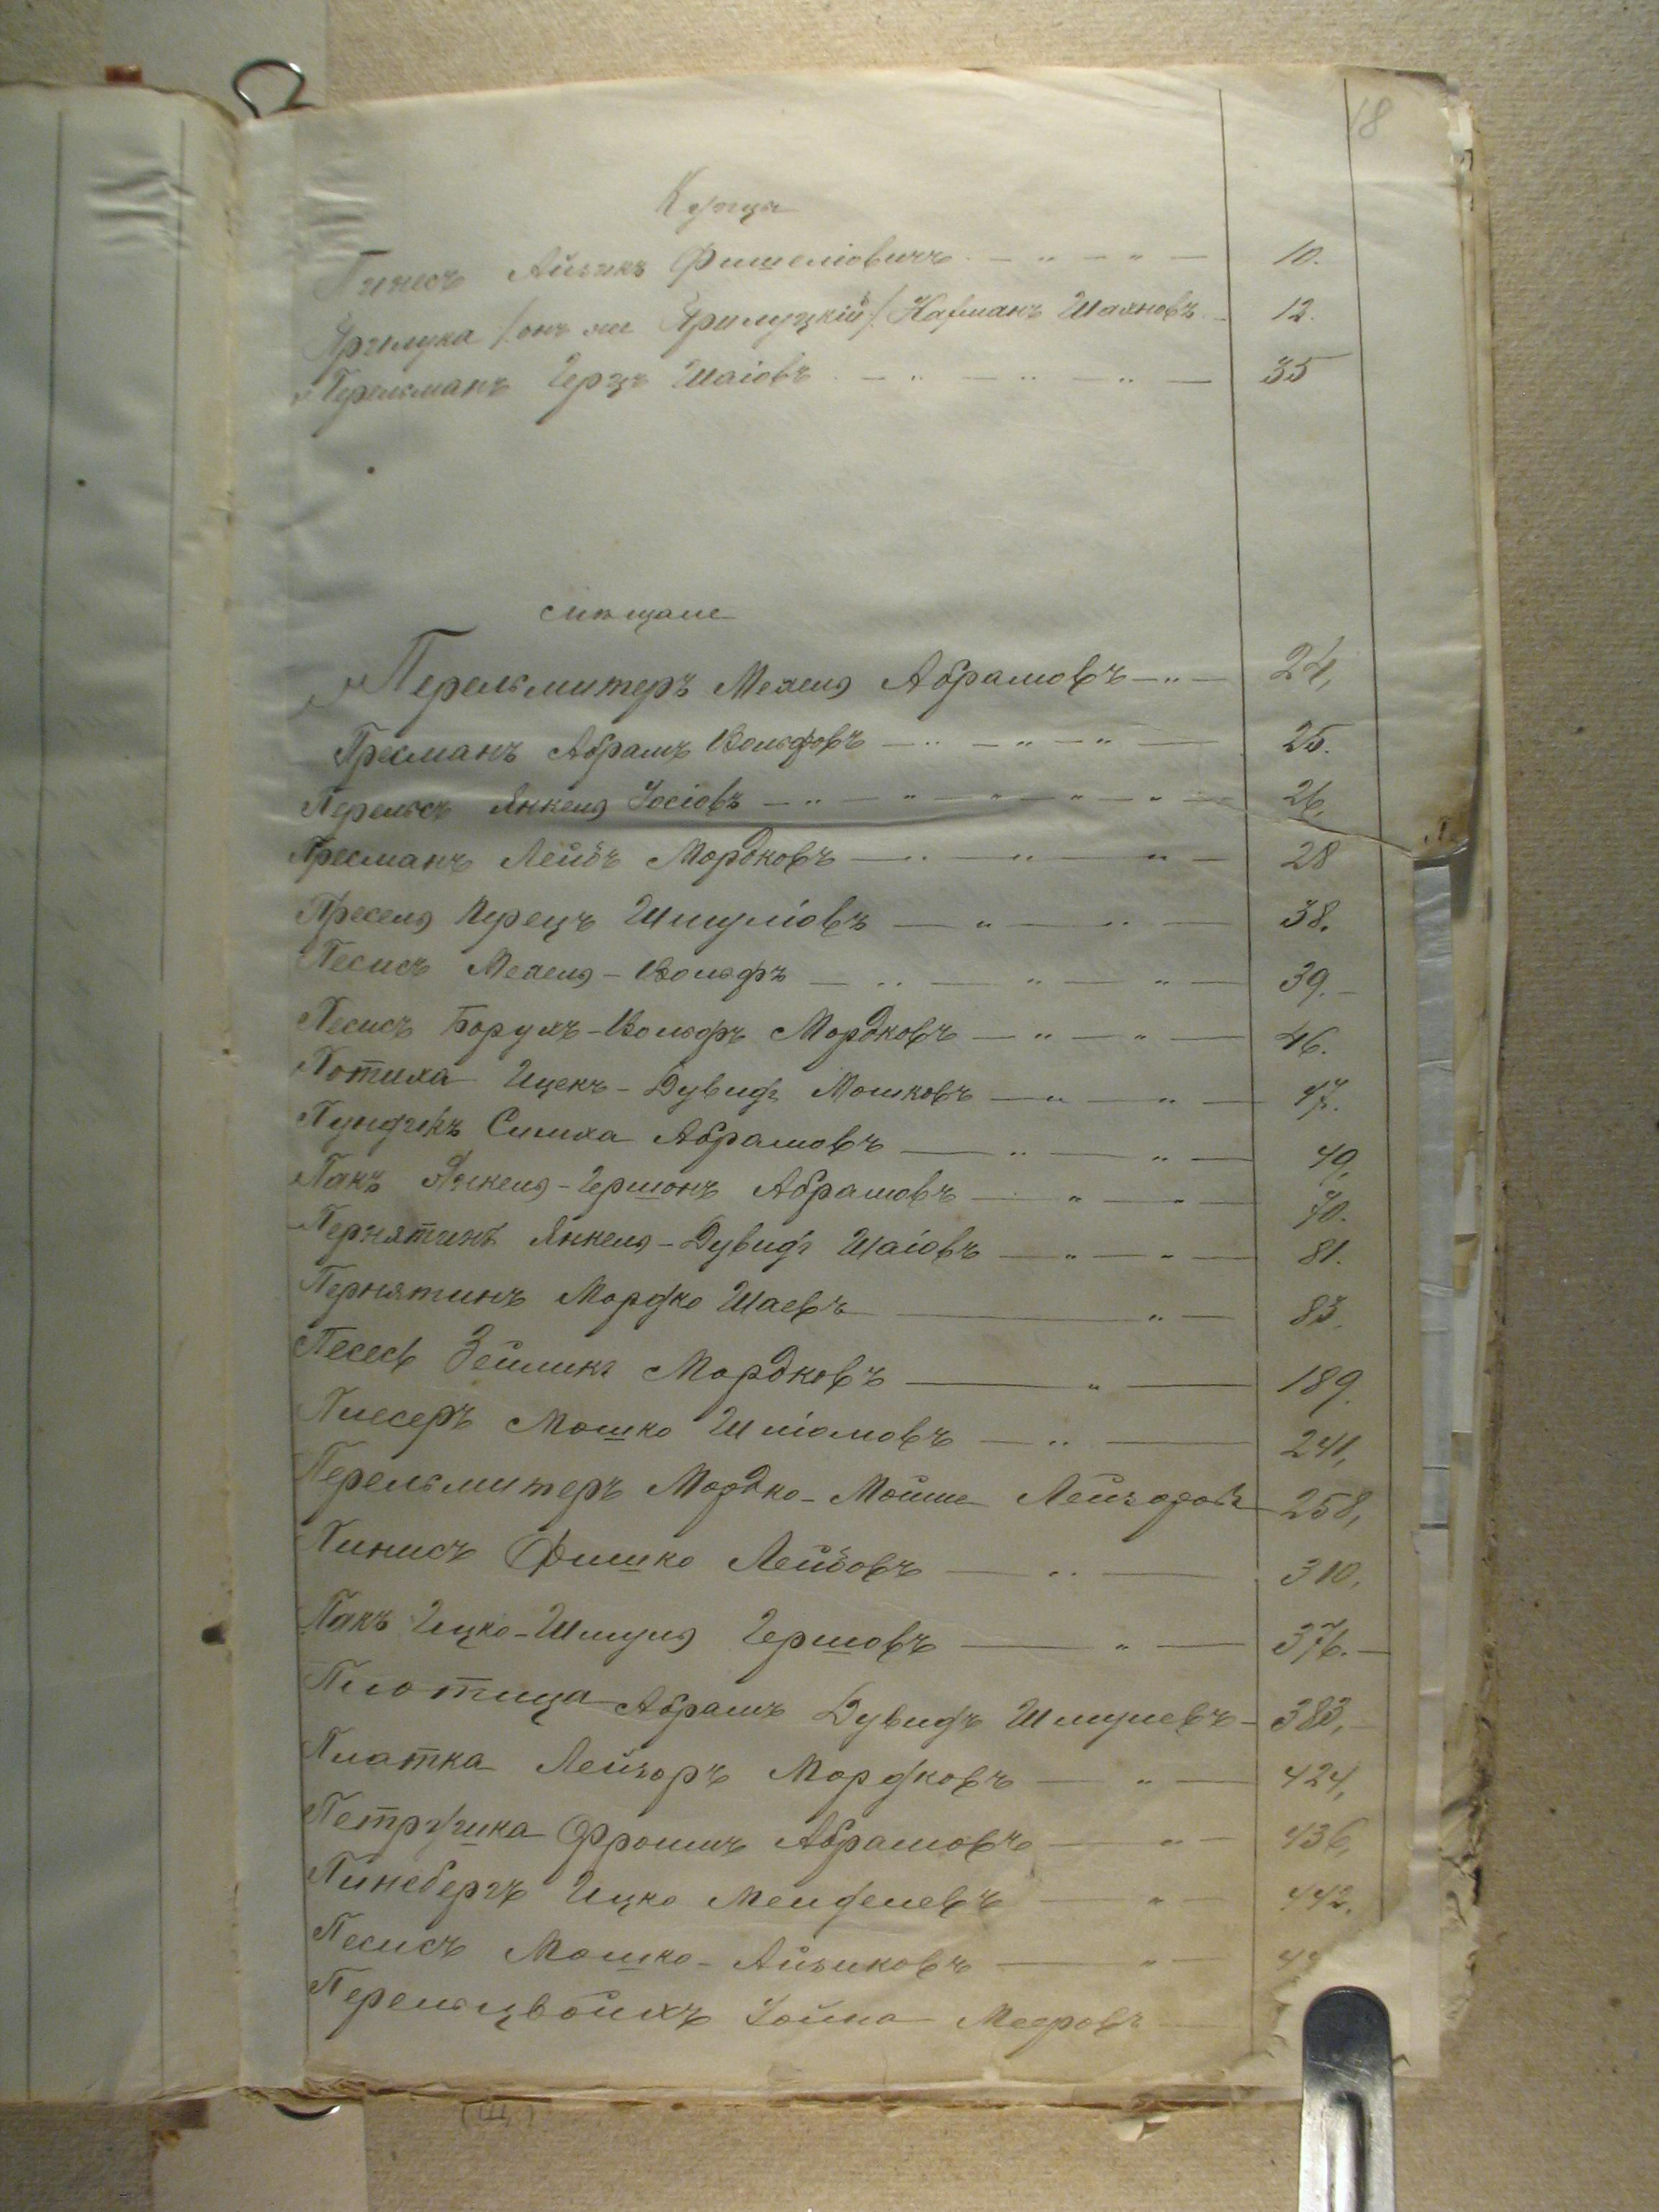 18
Купцы
Пинесъ Айзикъ Фишеліовичъ - " - " - 10.
Прилука /: онъ же Прилуцкій :/ Нахманъ Шахновъ - 12.
Перельманъ Герцъ Шаіовъ - " - " - " - 35
Мѣщане
Перельмитеръ Мехель Абрамовъ - " - 24,
Пресманъ Абрамъ Вольфовъ - " - " - " - 25.
Перельсъ Янкель Іосіовъ - " - " - " - " - " - 26,
Пресманъ Лейбъ Мордковъ - " - " - " - 28
Пресель Перецъ Шмуліовъ - " - " - 38.
Песисъ Мехель-Вольфъ - " - " - " - 39.-
Песисъ Борухъ-Вольфъ Мордковъ - " - " - 46.
Потиха Ицекъ-Дувидъ Мошковъ - " - " - 47.
Пундикъ Симха Абрамовъ - " - " - 49,
Пакъ Янкель-Гершонъ Абрамовъ - " - " - 70.
Пернятинъ Янкель-Дувидъ Шаіовъ - " - " - 81.
Пернятинъ Мордко Шаевъ - " - 83.
Песесъ Зейликъ Мордковъ - " - 189.
Плесеръ Мошко Шліомовъ - " - 241,
Перельмитеръ Мордко-Мойше Лейзоровъ 258,
Пинисъ Фишко Лейбовъ - " - 310.
Пакъ Ицко-Шмуль Гершовъ - " - 376.-
Плотица Абрамъ Дувидъ Шмулевъ - 383,-
Платка Лейзоръ Мордковъ - " - 424,
Фроимъ Абрамовъ - " - 436,
Пинсбергъ Ицко Менделевъ - " - 442.
Песисъ Мошко-Айзиковъ - " - 4
Перельцвойхъ Іойна Мееровъ -